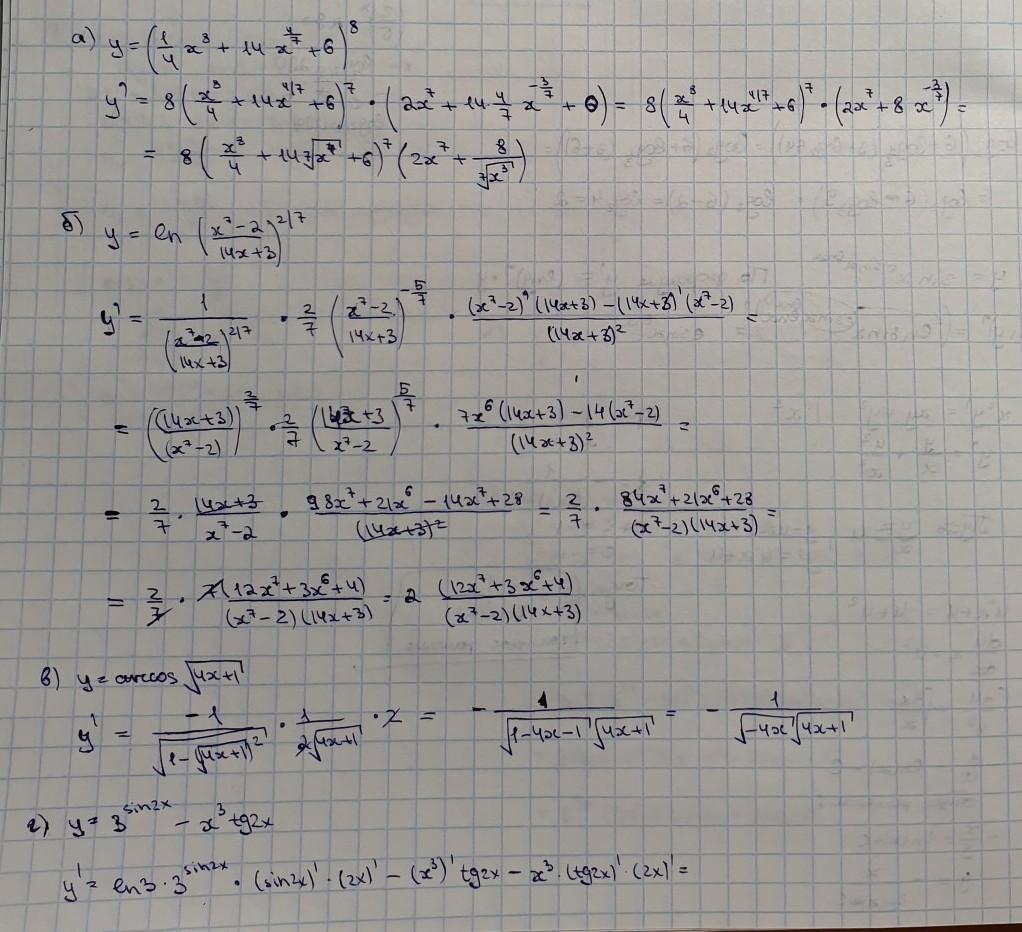 а) y = (1/4 x⁸ + 14 x^(4/7) + 6)⁸
y' = 8(x⁸/4 + 14x^(4/7) + 6)⁷ · (2x⁷ + 14 · 4/7 x^(-3/7) + 0) = 8(x⁸/4 + 14x^(4/7) + 6)⁷ · (2x⁷ + 8 x^(-3/7)) =
= 8(x⁸/4 + 14 ⁷√x⁴ + 6)⁷ (2x⁷ + 8/⁷√x³)
б) y = ln ((x⁷ - 2)/(14x + 3))^(2/7)
y' = 1/((x⁷ - 2)/(14x + 3))^(2/7) · 2/7 ((x⁷ - 2)/(14x + 3))^(-5/7) · ((x⁷ - 2)' (14x + 3) - (14x + 3)' (x⁷ - 2))/(14x + 3)² =
= ((14x + 3)/(x⁷ - 2))^(2/7) · 2/7 ((14x + 3)/(x⁷ - 2))^(5/7) · (7x⁶(14x + 3) - 14(x⁷ - 2))/(14x + 3)² =
= 2/7 · (14x + 3)/(x⁷ - 2) · (98x⁷ + 21x⁶ - 14x⁷ + 28)/(14x + 3)² = 2/7 · (84x⁷ + 21x⁶ + 28)/((x⁷ - 2)(14x + 3)) =
= 2/7 · 7(12x⁷ + 3x⁶ + 4)/((x⁷ - 2)(14x + 3)) = 2 (12x⁷ + 3x⁶ + 4)/((x⁷ - 2)(14x + 3))
в) y = arccos √(4x+1)
y' = -1/√(1 - (√(4x+1))²) · 1/(2√(4x+1)) · 2 = - 1/(√(1-4x-1) √(4x+1)) = - 1/(√(-4x) √(4x+1))
г) y = 3^(sin2x) - x³ tg2x
y' = ln3 · 3^(sin2x) · (sin2x)' · (2x)' - (x³)' tg2x - x³ · (tg2x)' · (2x)' =